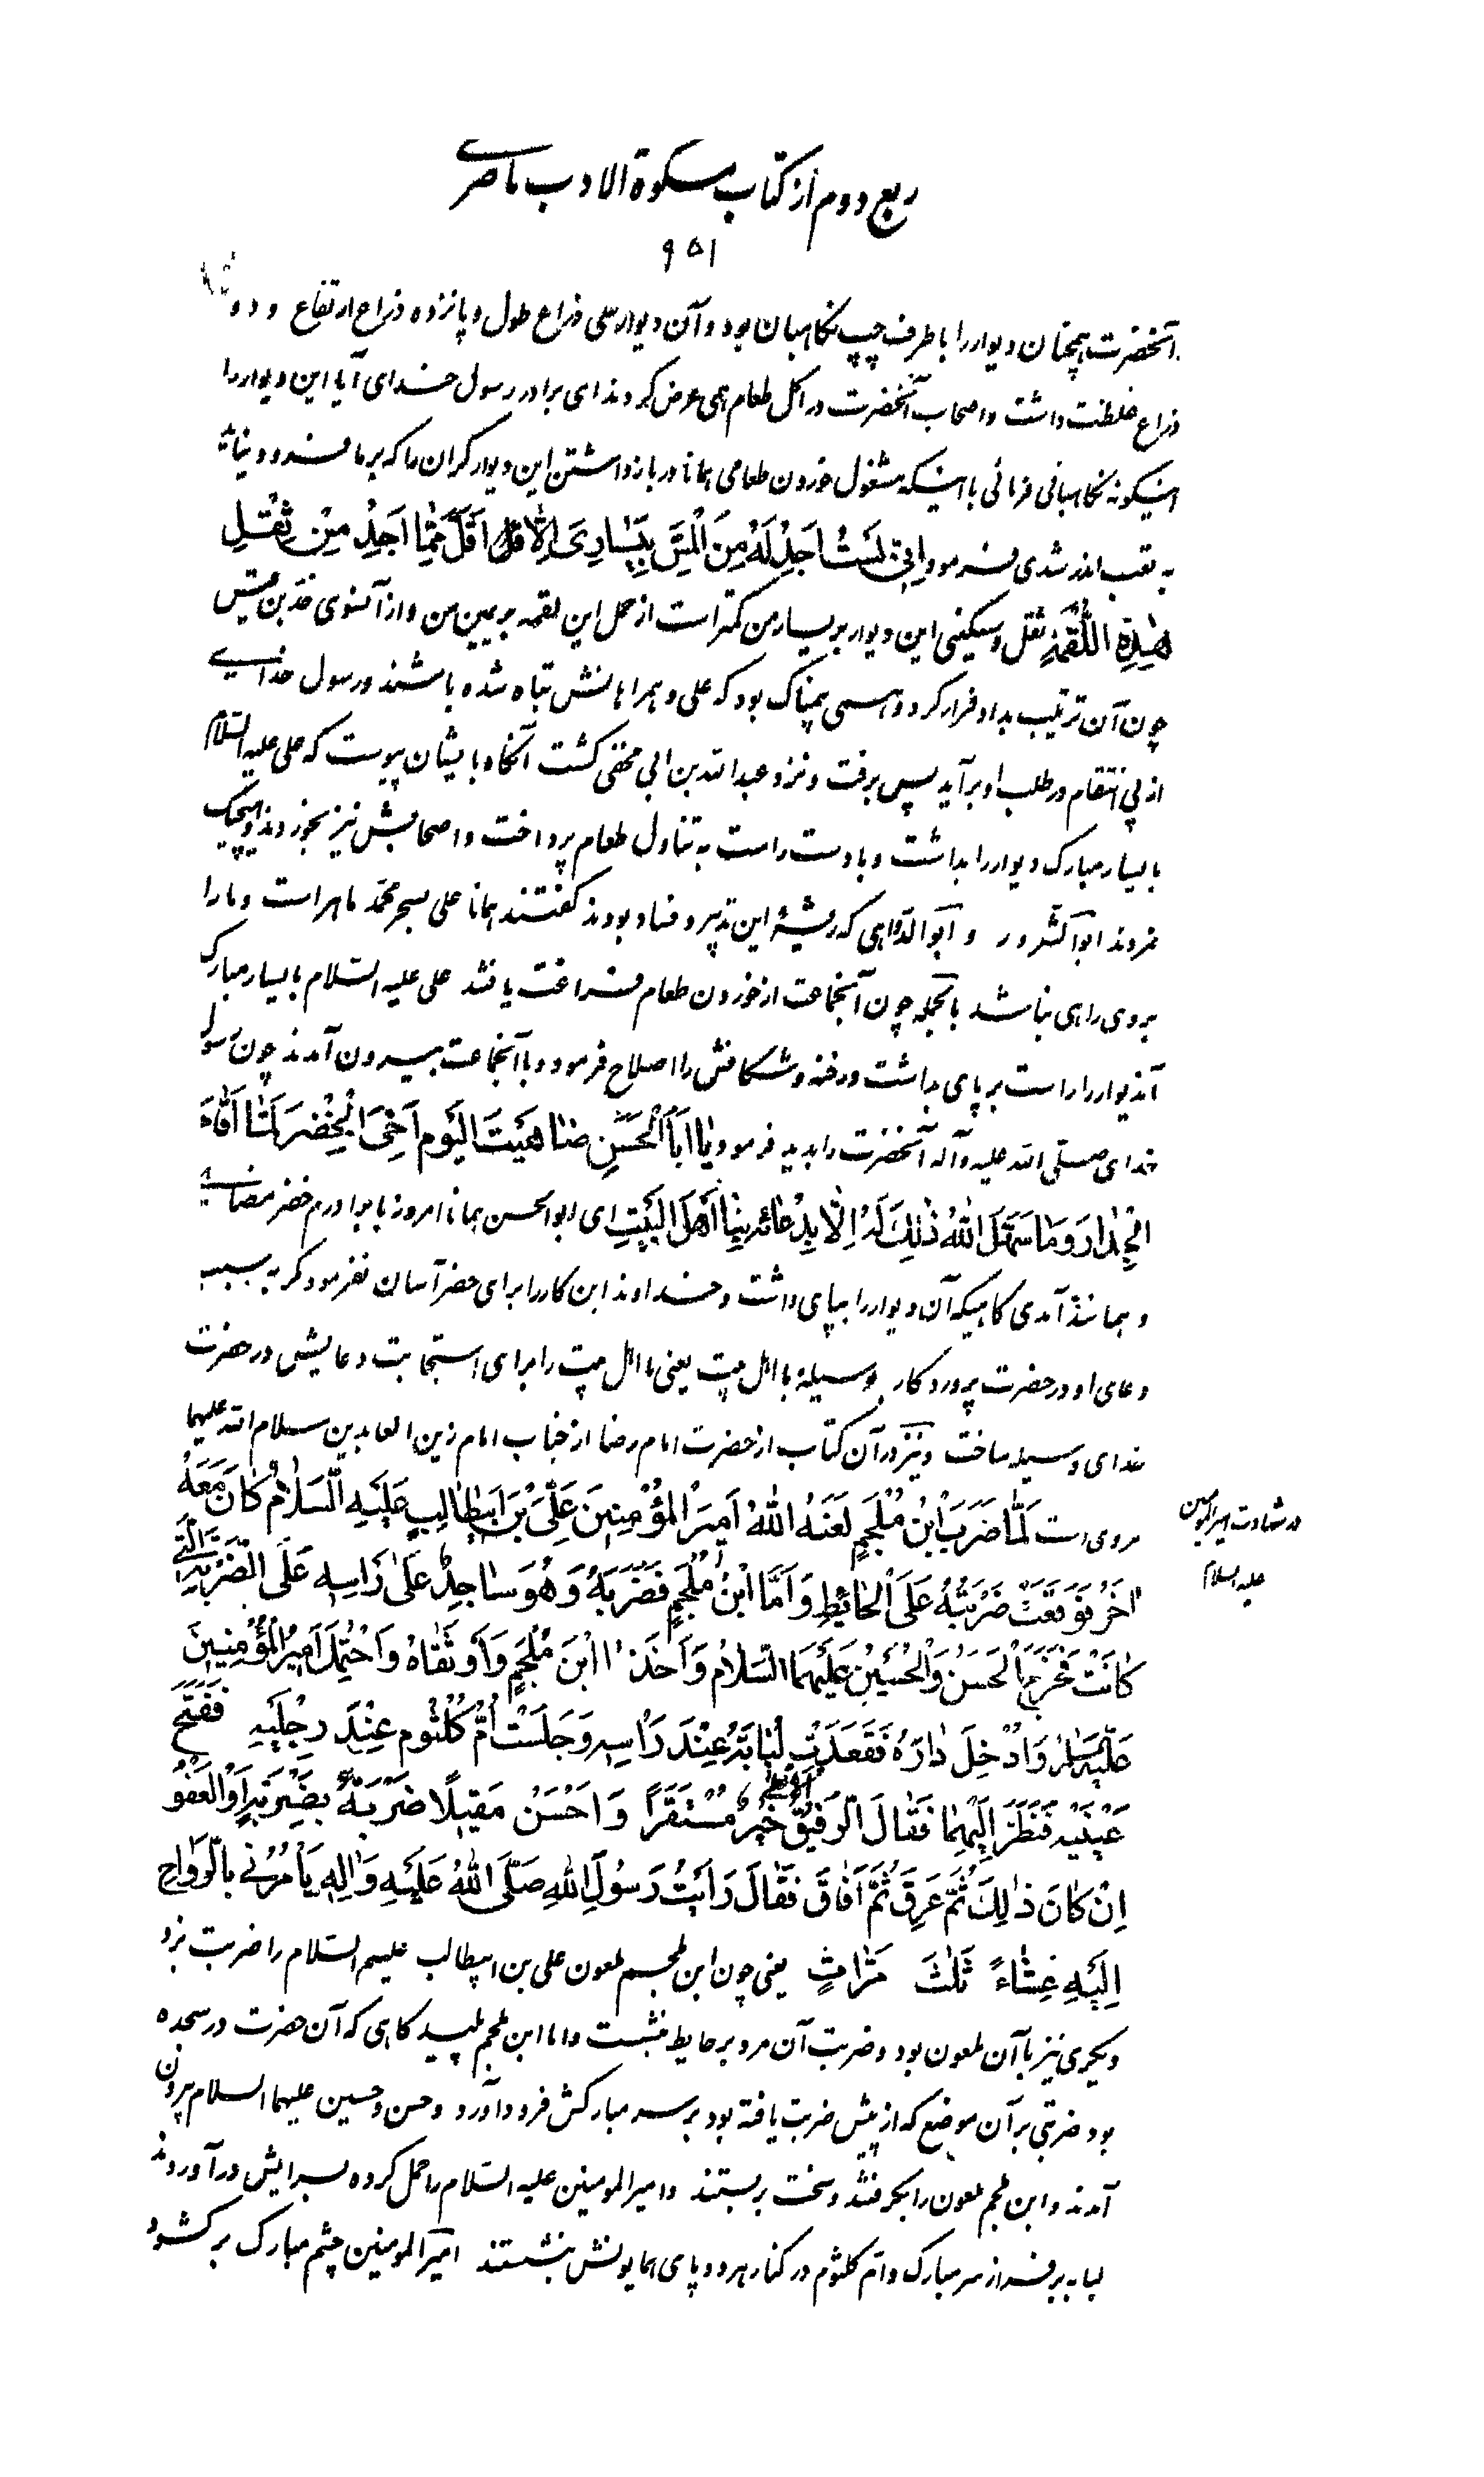 ربع دوم از کتاب مسکوة الادب ناصری
۹۵۱
آنحضرت همچنان دیوار را با طرف چپ نکاهبان بود و آن دیوار سی ذراع طول و پانزده ذراع ارتفاع و دو
ذراع غلظت داشت و اصحاب آنحضرت در اکل طعام همی عرض کردند ای برادر رسول خدای آیا این دیوار را
اینکونه نکاهبانی فرمائی با اینکه مشغول خوردن طعامی همانا در بازداشتن این دیوار کران را که بر ما فرود نیاید
به تعب اندر شدی فرمود اِنّی لَسْتُ اَجِدُ لَهُ مِنَ الْمَسِّ بِیَسٰارِی اِلّا اَقَلَّ مِمّٰا اَجِدُ مِنْ ثِقْلِ
هٰذِهِ اللُّقْمَةِ ثقل و سنکینی این دیوار بر یسار من کمتر است از حمل این لقمه بر یمین من و از آنسوی جد بن قیس
چون آن ترتیب بداد فرار کرد و همی بیمناک بود که علی و همراهانش تباه شده باشند و رسول خدای
از پی انتقام در طلب او برآید پس برفت و نزد عبدالله بن ابی مختفی کشت آنکاه بایشان پیوست که علی علیه السّلام
با یسار مبارک دیوار را بداشت و با دست راست به تناول طعام پرداخت و اصحابش نیز بخوردند و هیچیک
نمردند ابوالشرور و ابوالدّواهی که ریشهٔ این تدبیر و فساد بودند کفتند همانا علی بسحر محمّد ماهر است و ما را
بروی راهی نباشد بالجمله چون آنجماعت از خوردن طعام فراغت یافتند علی علیه السّلام با یسار مبارک
آندیوار را راست بر پای بداشت و رخنه و شکافش را اصلاح فرمود و با آنجماعت بیرون آمدند چون رسول
خدای صلّی الله علیه و آله آنحضرت را بدید فرمود یٰا اَبَا الْحَسَنِ ضٰاهَیْتَ الْیَوْمَ اَخِیَ الْخِضْرَ لَمّٰا اَقٰامَ
الْجِدٰارَ وَمٰا سَهَّلَ اللّٰهُ ذٰلِکَ لَهُ اِلّٰا بِدُعٰائِهِ بِنٰا اَهْلَ الْبَیْتِ ای ابوالحسن همانا امروز با برادرم خضر مضاهی
و همانند آمدی کاهیکه آن دیوار را بپای داشت و خداوند این کار را برای خضر آسان نفرمود مکر به سبب
دعای او در حضرت پروردکار بوسیلهٔ ما اهل بیت یعنی ما اهل بیت را برای استجابت دعایش در حضرت
خدای وسیله ساخت و نیز در آن کتاب از حضرت امام رضا از جناب امام زین العابدین سلام الله علیهما
مروی است لَمّٰا ضَرَبَ ابْنُ مُلْجَمٍ لَعَنَهُ اللّٰهُ اَمِیرَ الْمُؤْمِنِینَ عَلِیَّ بْنَ اَبِیطٰالِبٍ عَلَیْهِ السَّلٰامُ کٰانَ مَعَهُ
در شهادت امیرالمؤمنین
علیه السلام
اٰخَرُ فَوَقَعَتْ ضَرْبَتُهُ عَلَی الْحٰائِطِ وَاَمَّا ابْنُ مُلْجَمٍ فَضَرَبَهُ وَهُوَ سٰاجِدٌ عَلٰی رَاْسِهِ عَلَی الضَّرْبَةِ الَّتِی
کٰانَتْ فَخَرَجَ الْحَسَنُ وَالْحُسَیْنُ عَلَیْهِمَا السَّلٰامُ وَاَخَذَا ابْنَ مُلْجَمٍ وَاَوْثَقٰاهُ وَاحْتُمِلَ اَمِیرُ الْمُؤْمِنِینَ
عَلَیْهِ السَّلٰامُ وَاُدْخِلَ دٰارَهُ فَقَعَدَتْ لُبٰابَةُ عِنْدَ رَاْسِهِ وَجَلَسَتْ اُمُّ کُلْثُومٍ عِنْدَ رِجْلَیْهِ فَفَتَحَ
عَیْنَیْهِ فَنَظَرَ اِلَیْهِمٰا فَقٰالَ الرَّفِیقُ الْاَعْلٰی خَیْرٌ مُسْتَقَرًّا وَاَحْسَنُ مَقِیلًا ضَرْبَةٌ بِضَرْبَةٍ اَوِ الْعَفْوُ
اِنْ کٰانَ ذٰلِکَ ثُمَّ عَرِقَ ثُمَّ اَفٰاقَ فَقٰالَ رَاَیْتُ رَسُولَ اللّٰهِ صَلَّی اللّٰهُ عَلَیْهِ وَاٰلِهِ یَاْمُرُنِی بِالرَّوٰاحِ
اِلَیْهِ عِشٰاءً ثَلٰثَ مَرّٰاتٍ یعنی چون ابن ملجم ملعون علی بن ابیطالب علیهم السّلام را ضربت بزد
دیکری نیز با آن ملعون بود و ضربت آن مرد بر حایط نشست و اما ابن ملجم پلید کاهی که آن حضرت در سجده
بود ضربتی بر آن موضع که از پیش ضربت یافته بود بر سر مبارکش فرود آورد و حسن و حسین علیهما السلام بیرون
آمدند و ابن ملجم ملعون را بکرفتند و سخت بر بستند و امیرالمومنین علیه السّلام را حمل کرده بسرایش در آوردند
لبابه بر فراز سر مبارک و امّ کلثوم در کنار هر دو پای همایونش بنشستند امیرالمومنین چشم مبارک بر کشود